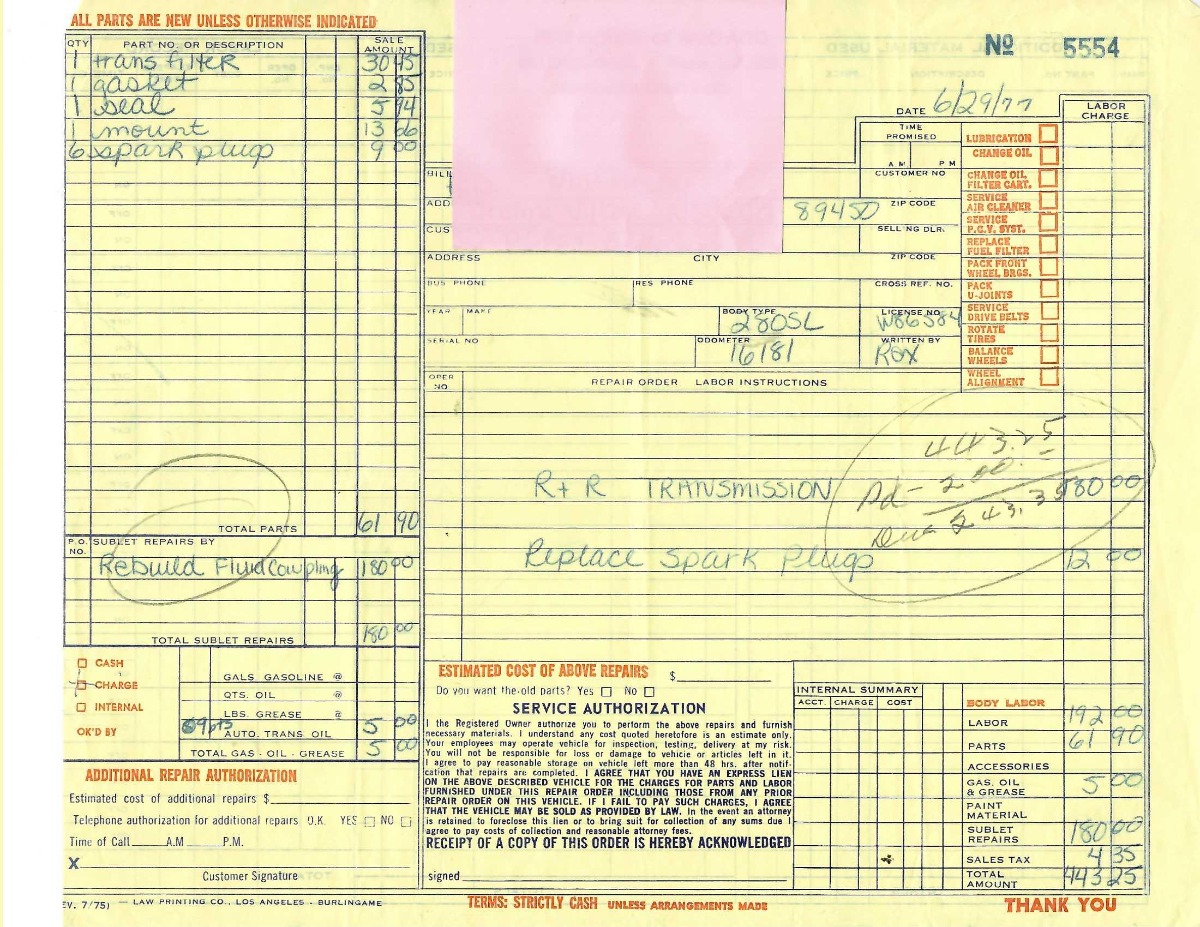 ALL PARTS ARE NEW UNLESS OTHERWISE INDICATED
QTY PART NO. OR DESCRIPTION SALE AMOUNT
1 trans filter 30 45
1 gasket 2 85
1 seal 5 94
1 mount 13 66
6 spark plug 9 00
TOTAL PARTS 61 90
P.O. NO. SUBLET REPAIRS BY
Rebuild Fluid Coupling 180 00
TOTAL SUBLET REPAIRS 180 00
CASH
CHARGE
INTERNAL
OK'D BY
GALS GASOLINE @
QTS. OIL @
LBS. GREASE @
9pts AUTO. TRANS OIL 5 00
TOTAL GAS - OIL - GREASE 5 00
ADDITIONAL REPAIR AUTHORIZATION
Estimated cost of additional repairs $
Telephone authorization for additional repairs O.K. YES NO
Time of Call A.M P.M.
X
Customer Signature
EV. 7/75) — LAW PRINTING CO., LOS ANGELES - BURLINGAME
№ 5554
DATE 6/29/77
LABOR CHARGE
TIME PROMISED
A M P M
CUSTOMER NO
BILL
ADD
89450 ZIP CODE
CUS
SELLING DLR.
ADDRESS CITY ZIP CODE
BUS PHONE RES PHONE CROSS REF. NO.
YEAR MAKE BODY TYPE LICENSE NO
280SL W86584
SERIAL NO ODOMETER WRITTEN BY
16181 Rox
LUBRICATION
CHANGE OIL
CHANGE OIL FILTER CART.
SERVICE AIR CLEANER
SERVICE P.C.V. SYST.
REPLACE FUEL FILTER
PACK FRONT WHEEL BRGS.
PACK U-JOINTS
SERVICE DRIVE BELTS
ROTATE TIRES
BALANCE WHEELS
WHEEL ALIGNMENT
OPER NO. REPAIR ORDER LABOR INSTRUCTIONS
443.25
R+R TRANSMISSION 180 00
Pd - 200.
Due 243.25
Replace Spark Plugs 12 00
ESTIMATED COST OF ABOVE REPAIRS $
Do you want the old parts? Yes No
SERVICE AUTHORIZATION
I the Registered Owner authorize you to perform the above repairs and furnish
necessary materials. I understand any cost quoted heretofore is an estimate only.
Your employees may operate vehicle for inspection, testing, delivery at my risk.
You will not be responsible for loss or damage to vehicle or articles left in it.
I agree to pay reasonable storage on vehicle left more than 48 hrs. after notif-
cation that repairs are completed. I AGREE THAT YOU HAVE AN EXPRESS LIEN
ON THE ABOVE DESCRIBED VEHICLE FOR THE CHARGES FOR PARTS AND LABOR
FURNISHED UNDER THIS REPAIR ORDER INCLUDING THOSE FROM ANY PRIOR
REPAIR ORDER ON THIS VEHICLE. IF I FAIL TO PAY SUCH CHARGES, I AGREE
THAT THE VEHICLE MAY BE SOLD AS PROVIDED BY LAW. In the event an attorney
is retained to foreclose this lien or to bring suit for collection of any sums due I
agree to pay costs of collection and reasonable attorney fees.
RECEIPT OF A COPY OF THIS ORDER IS HEREBY ACKNOWLEDGED
signed
INTERNAL SUMMARY
ACCT. CHARGE COST
BODY LABOR
LABOR 192 00
PARTS 61 90
ACCESSORIES
GAS, OIL & GREASE 5 00
PAINT MATERIAL
SUBLET REPAIRS 180 00
SALES TAX 4 35
TOTAL AMOUNT 443 25
TERMS: STRICTLY CASH UNLESS ARRANGEMENTS MADE
THANK YOU